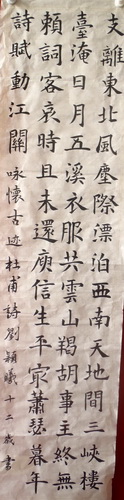 支離東北風塵際漂泊西南天地間三峽樓
臺淹日月五溪衣服共雲山羯胡事主終無
賴詞客哀時且未還庾信生平冣蕭瑟暮年
詩賦動江關
詠懷古迹杜甫詩劉穎曦十二歲書